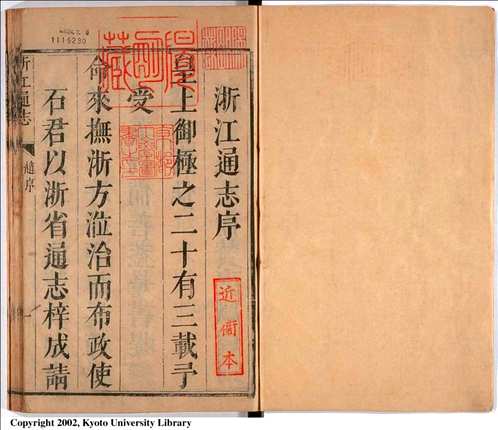 浙江通志序
皇上御極之二十有三載予
受
命來撫浙方涖治而布政使
石君以浙省通志梓成請
浙江通志
趙序
一
近衛本
1116230
Copyright 2002, Kyoto University Library